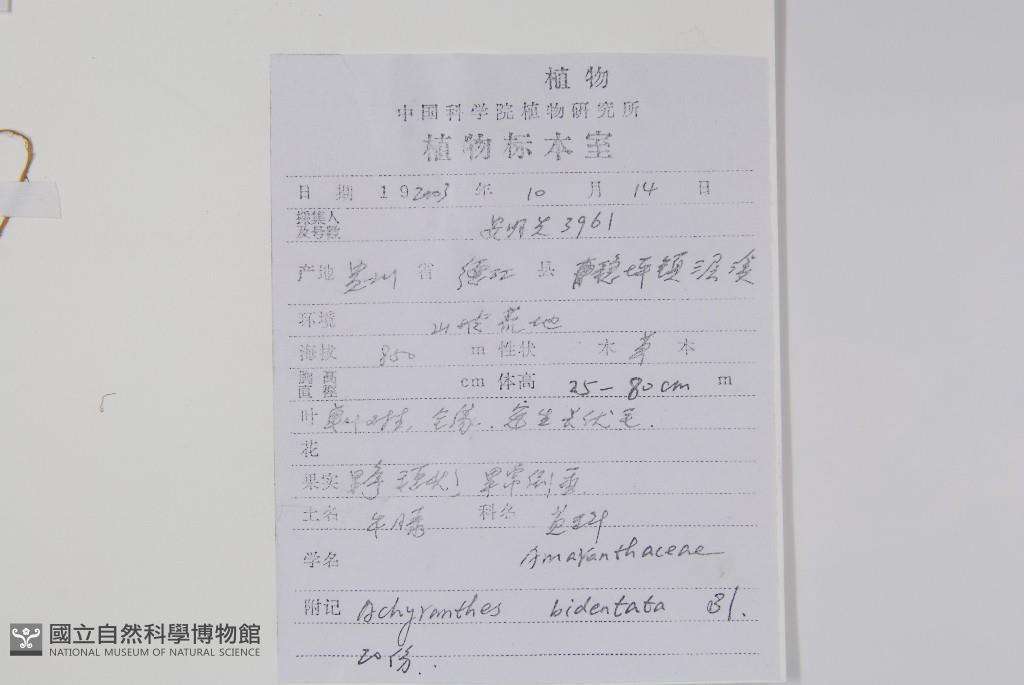 植物
中国科学院植物研究所
植物标本室
日期 192003年 10月 14日
採集人及号数 3961
产地 贵州省 德江县 稳坪镇
环境 荒地
海拔 850 m 性状 木 草 本
胸高直径 cm 体高 25-80cm m
叶 单叶对生, 全缘, 密生长伏毛.
花
果实 果序穗状, 果常倒垂.
土名 牛膝 科名 苋科
学名 Amaranthaceae
附记 Achyranthes bidentata Bl.
20份.
國立自然科學博物館
NATIONAL MUSEUM OF NATURAL SCIENCE